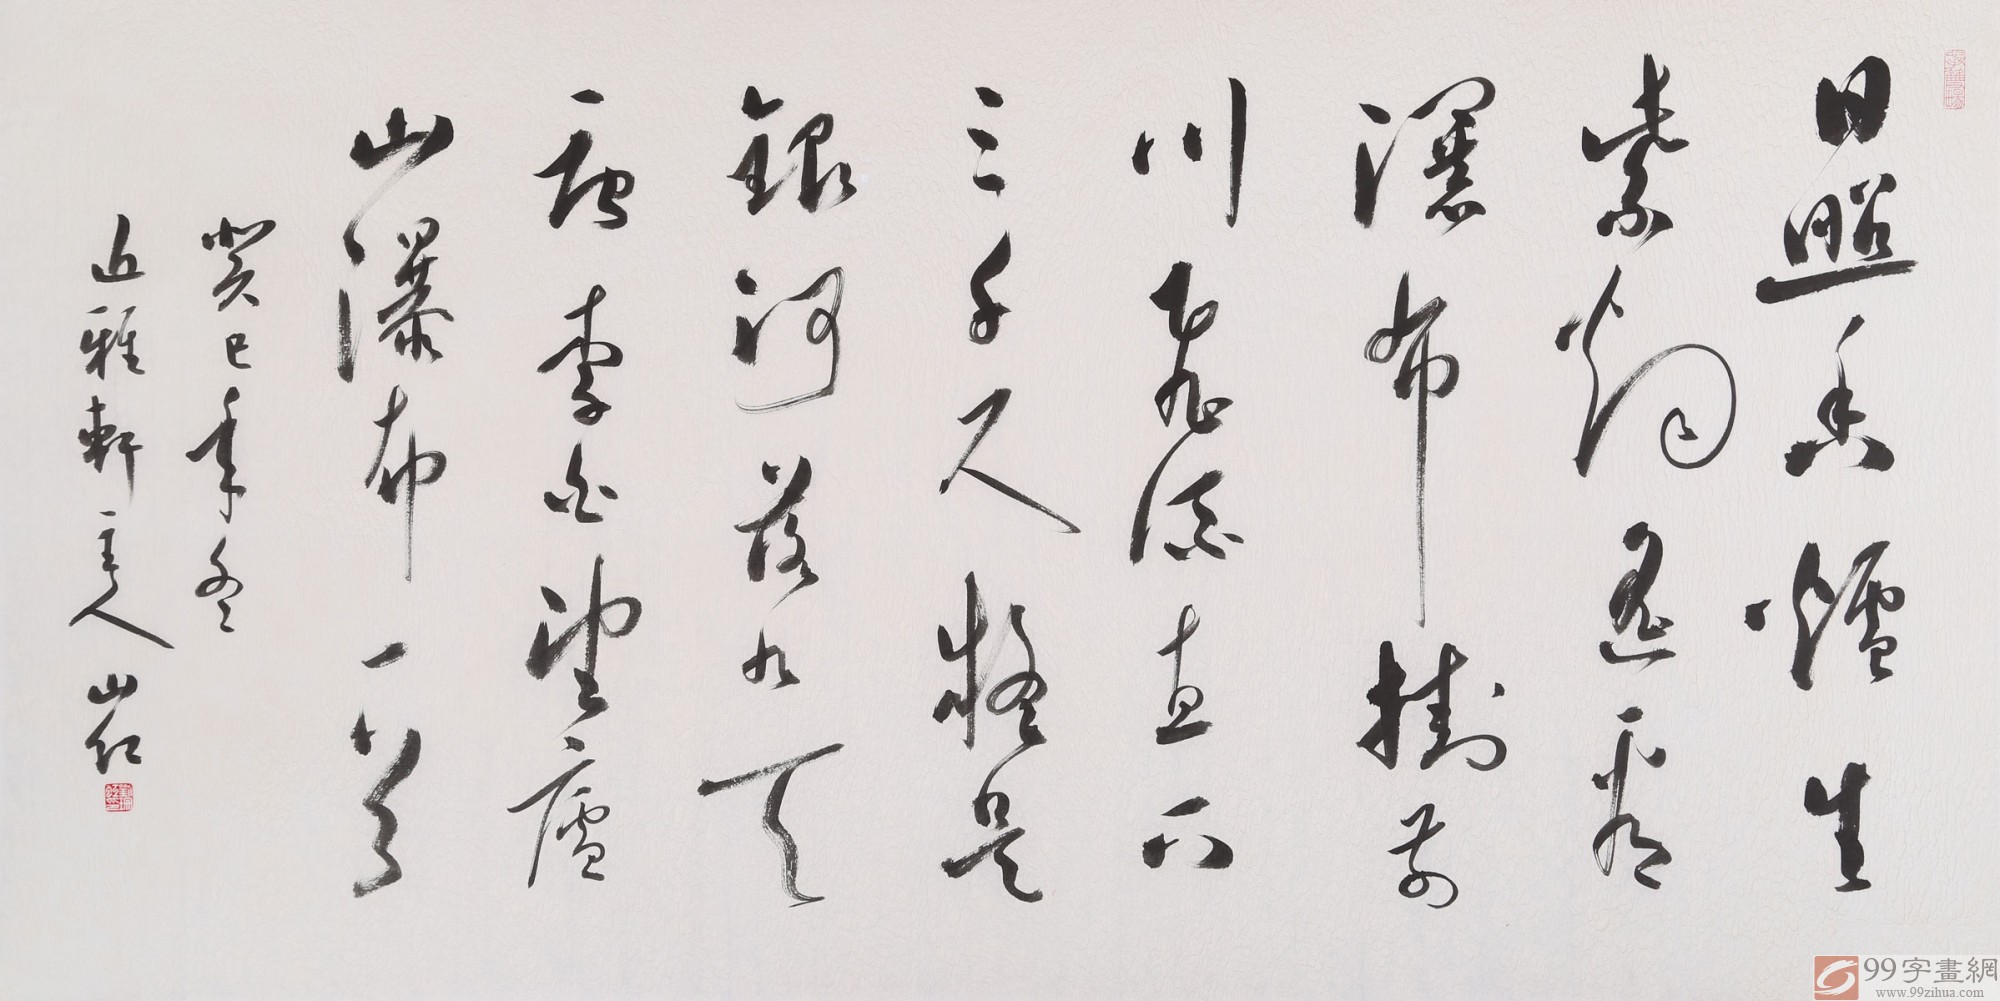 日照香爐生
紫烟遥看
瀑布掛前
川飛流直下
三千尺疑是
銀河落九天
唐李白望廬
山瀑布一首
癸巳年冬
近雅軒主人山
99字畫網
www.99zihua.com